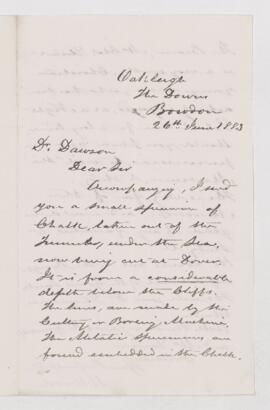 Oakleigh
The Downs
Bowdon
26th June 1883
Dr. Dawson
Dear Sir
Accompanying, I send
you a small specimen of
Chalk, taken out of the
Tunnel, under the Sea,
now being cut at Dover.
It is from a considerable
depth below the Cliffs.
The lines, are made by the
Cutting or Boring Machine.
The Metalic Specimens are
found embedded in the Chalk.